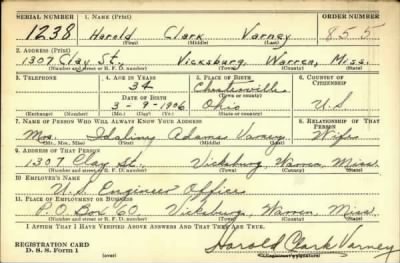 SERIAL NUMBER 1. NAME (Print) ORDER NUMBER
1238 Harold Clark Varney 855
(First) (Middle) (Last)
2. ADDRESS (Print)
1307 Clay St., Vicksburg, Warren, Miss.
(Number and street or R. F. D. number) (Town) (County) (State)
3. TELEPHONE 4. AGE IN YEARS 5. PLACE OF BIRTH 6. COUNTRY OF CITIZENSHIP
34 Chesterville
DATE OF BIRTH (Town or county)
3-9-1906 Ohio U.S
(Exchange) (Number) (Mo.) (Day) (Yr.) (State or country)
7. NAME OF PERSON WHO WILL ALWAYS KNOW YOUR ADDRESS 8. RELATIONSHIP OF THAT PERSON
Mrs. Adams Varney Wife
(Mr., Mrs., Miss) (First) (Middle) (Last)
9. ADDRESS OF THAT PERSON
1307 Clay St., Vicksburg, Warren, Miss.
(Number and street or R. F. D. number) (Town) (County) (State)
10. EMPLOYER'S NAME
U.S. Engineer Office
11. PLACE OF EMPLOYMENT OR BUSINESS
P.O. Box 60, Vicksburg, Warren, Miss.
(Number and street or R. F. D. number) (Town) (County) (State)
I AFFIRM THAT I HAVE VERIFIED ABOVE ANSWERS AND THAT THEY ARE TRUE.
REGISTRATION CARD
D. S. S. Form 1 (over) Harold Clark Varney
(Registrant's signature)